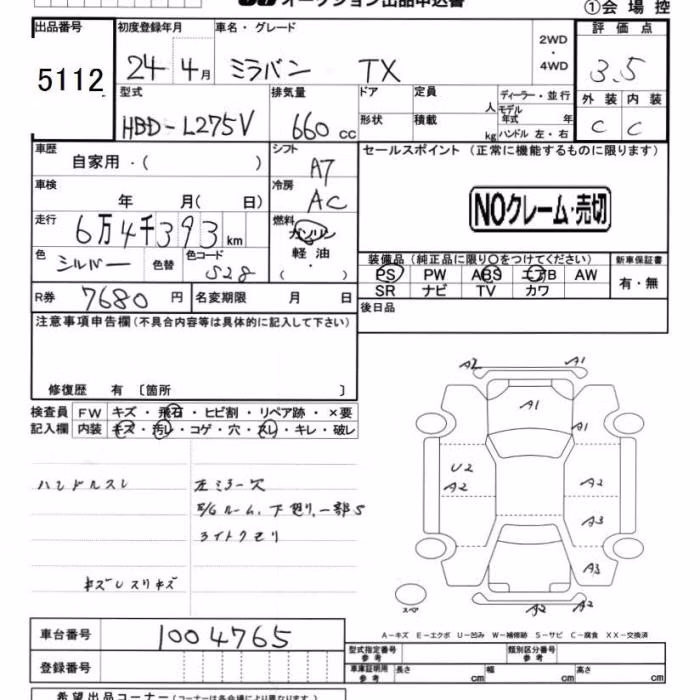 オークション出品申込書
①会場控
出品番号
5112
初度登録年月
24 4月
車名・グレード
ミラバン TX
2WD
・
4WD
評価点
3.5
外装 内装
C C
型式
HBD-L275V
排気量
660 cc
ドア
形状
定員 人
積載 kg
ディーラー・並行
モデル年式 年
ハンドル 左・右
車歴
自家用・( )
シフト
A7
セールスポイント (正常に機能するものに限ります)
車検
年 月( 日)
冷房
AC
NOクレーム・売切
走行
6万4千393 km
燃料
ガソリン
軽油
・( )
色
シルバー
色替
色コード
S28
装備品 (純正品に限り○をつけてください)
新車保証書
PS PW ABS エアB AW
有・無
SR ナビ TV カワ
R券 7680 円
名変期限 月 日
後日品
注意事項申告欄(不具合内容等は具体的に記入して下さい)
修復歴 有 〔箇所 〕
検査員 FW キズ・飛石・ヒビ割・リペア跡・×要
記入欄 内装 キズ・汚レ・コゲ・穴・スレ・キレ・破レ
ハンドルスレ
左ミラー欠
E/Gルーム、下廻り、一部S
ライトクモリ
キズUスリキズ
A2 A1
A1
A1
U2
A2
A2
A3
A3
A2 A2
スペア
A-キズ E-エクボ U-凹み W-補修跡 S-サビ C-腐食 XX-交換済
車台番号
1004765
登録番号
型式指定番号 参考
類別区分番号 参考
車庫証明用 参考
長さ cm
幅 cm
高さ cm
希望出品コーナー(コーナーは各会場により異なります。)